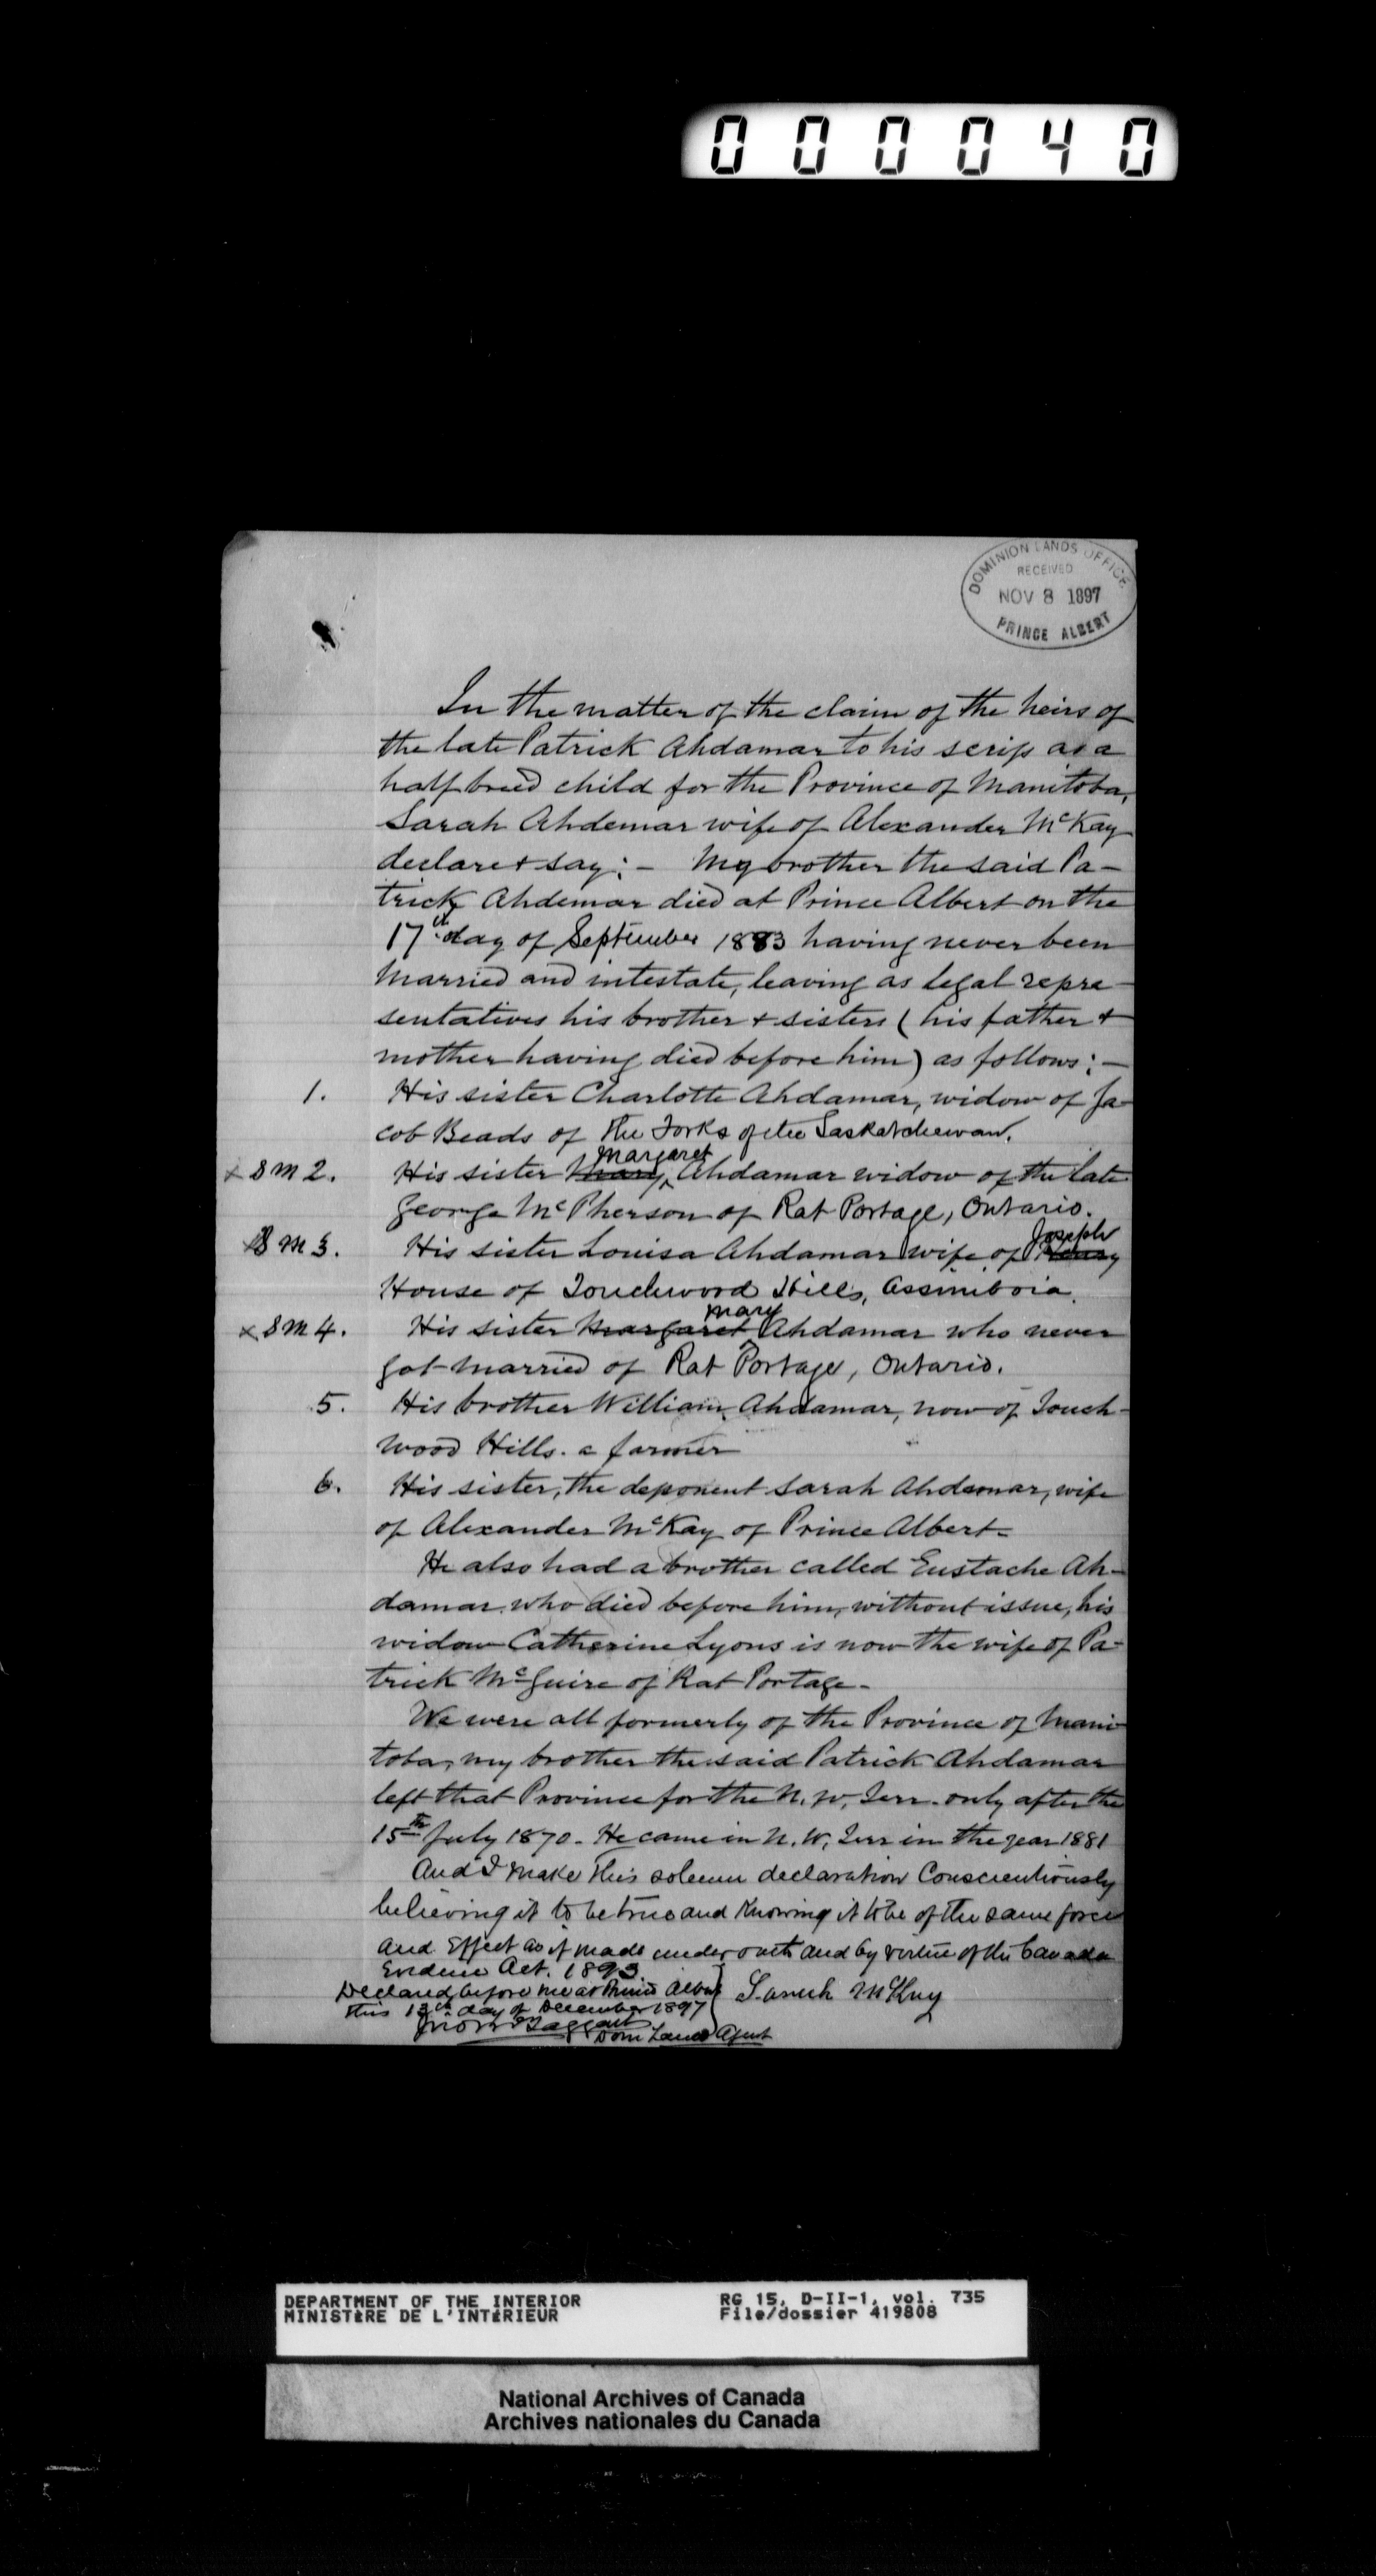 000040
DOMINION LANDS OFFICE
RECEIVED
NOV 8 1897
PRINCE ALBERT
In the matter of the claim of the heirs of
the late Patrick Ahdamar to his scrip as a
half breed child for the Province of Manitoba,
Sarah Ahdemar wife of Alexander McKay
declare & say: – My brother the said Pa-
trick Ahdemar died at Prince Albert on the
17th day of September 1883 having never been
married and intestate, leaving as legal repre-
sentatives his brother & sisters (his father &
mother having died before him) as follows: –
1. His sister Charlotte Ahdamar, widow of Ja-
cob Beads of the Forks of the Saskatchewan.
Margaret
x S M 2. His sister Mary Ahdamar widow of the late
George McPherson of Rat Portage, Ontario.
Joseph
x S M 3. His sister Louisa Ahdamar wife of Henry
House of Touchwood Hills, Assiniboia.
Mary
x S M 4. His sister Margaret Ahdamar who never
got married of Rat Portage, Ontario.
5. His brother William Ahdamar, now of Touch-
wood Hills. a farmer
6. His sister, the deponent Sarah Ahdamar, wife
of Alexander McKay of Prince Albert –
He also had a brother called Eustache Ah-
damar who died before him, without issue, his
widow Catherine Lyons is now the wife of Pa-
trick McGuire of Rat Portage –
We were all formerly of the Province of Mani-
toba, my brother the said Patrick Ahdamar
left that Province for the N. W. Terr. only after the
15th July 1870 – He came in N. W. Terr in the year 1881
And I make this solemn declaration Conscientiously
believing it to be true and Knowing it to be of the same force
and Effect as if made under oath and by virtue of the Canada
Evidence Act. 1893
Declared before me at Prince Albert
this 13th day of December 1897
Sarah McKay
Taggart
Dom Lands Agent
DEPARTMENT OF THE INTERIOR
MINISTÈRE DE L'INTÉRIEUR
RG 15, D-II-1, vol. 735
File/dossier 419808
National Archives of Canada
Archives nationales du Canada